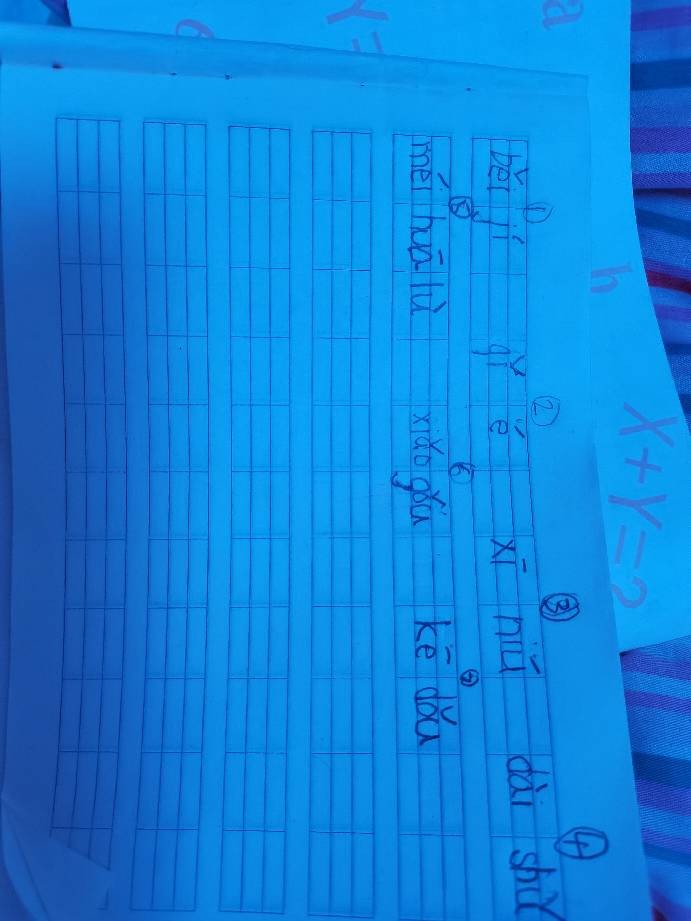 ① ② ③ ④
běi jí qǐ é xī niú dài shǔ
⑤ ⑥ ⑦
méi huā lù xiǎo gǒu kē dǒu
X+Y=?
h
a
Y=